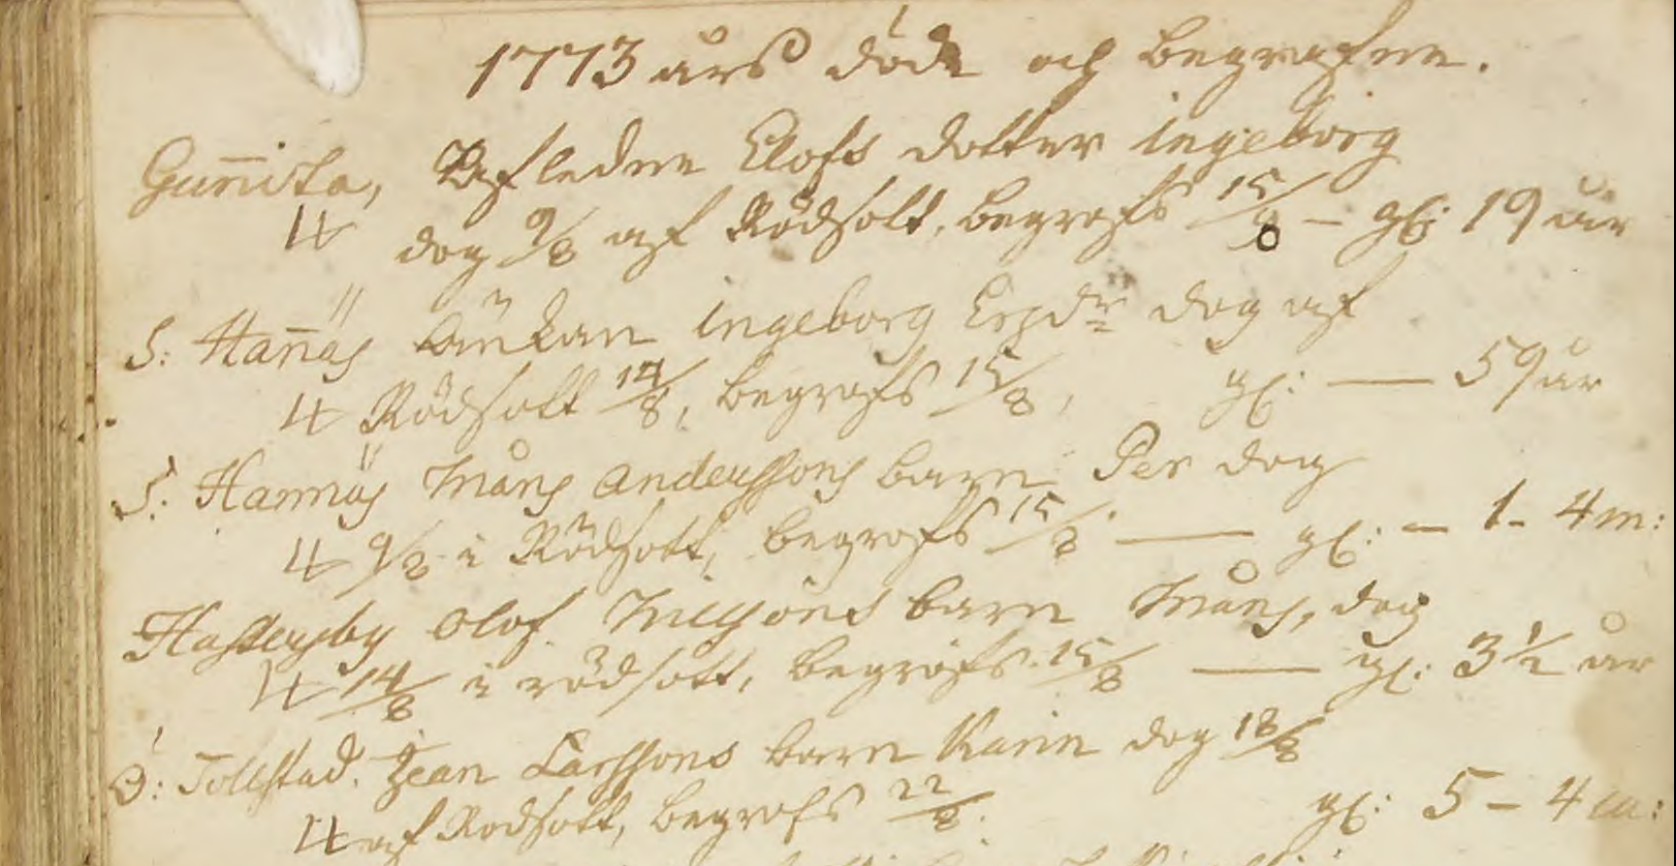 1773 års döde och begrafne.
Gun̄ista, Afledne Elofs dotter ingeborg
dog 9/8 af Rödsott, begrofs 15/8 – gl: 19 år
S: Han̄äs Änkan ingeborg Ersdr dog af
Rödsott 14/8, begrofs 15/8, gl: — 59 år
S: Hannäs Måns Anderssons barn Per dog
9/8 i Rödsott, begrofs 15/8 — gl: – 1 – 4 m:
Hassersby Olof Nilsons barn Måns, dog
14/8 i rödsott, begrofs 15/8 — gl: 3 1/2 år
Ö: Tollstad. Jean Larssons barn Karin dog 18/8
af Rödsott, begrofs 22/8. gl: 5 – 4 m: